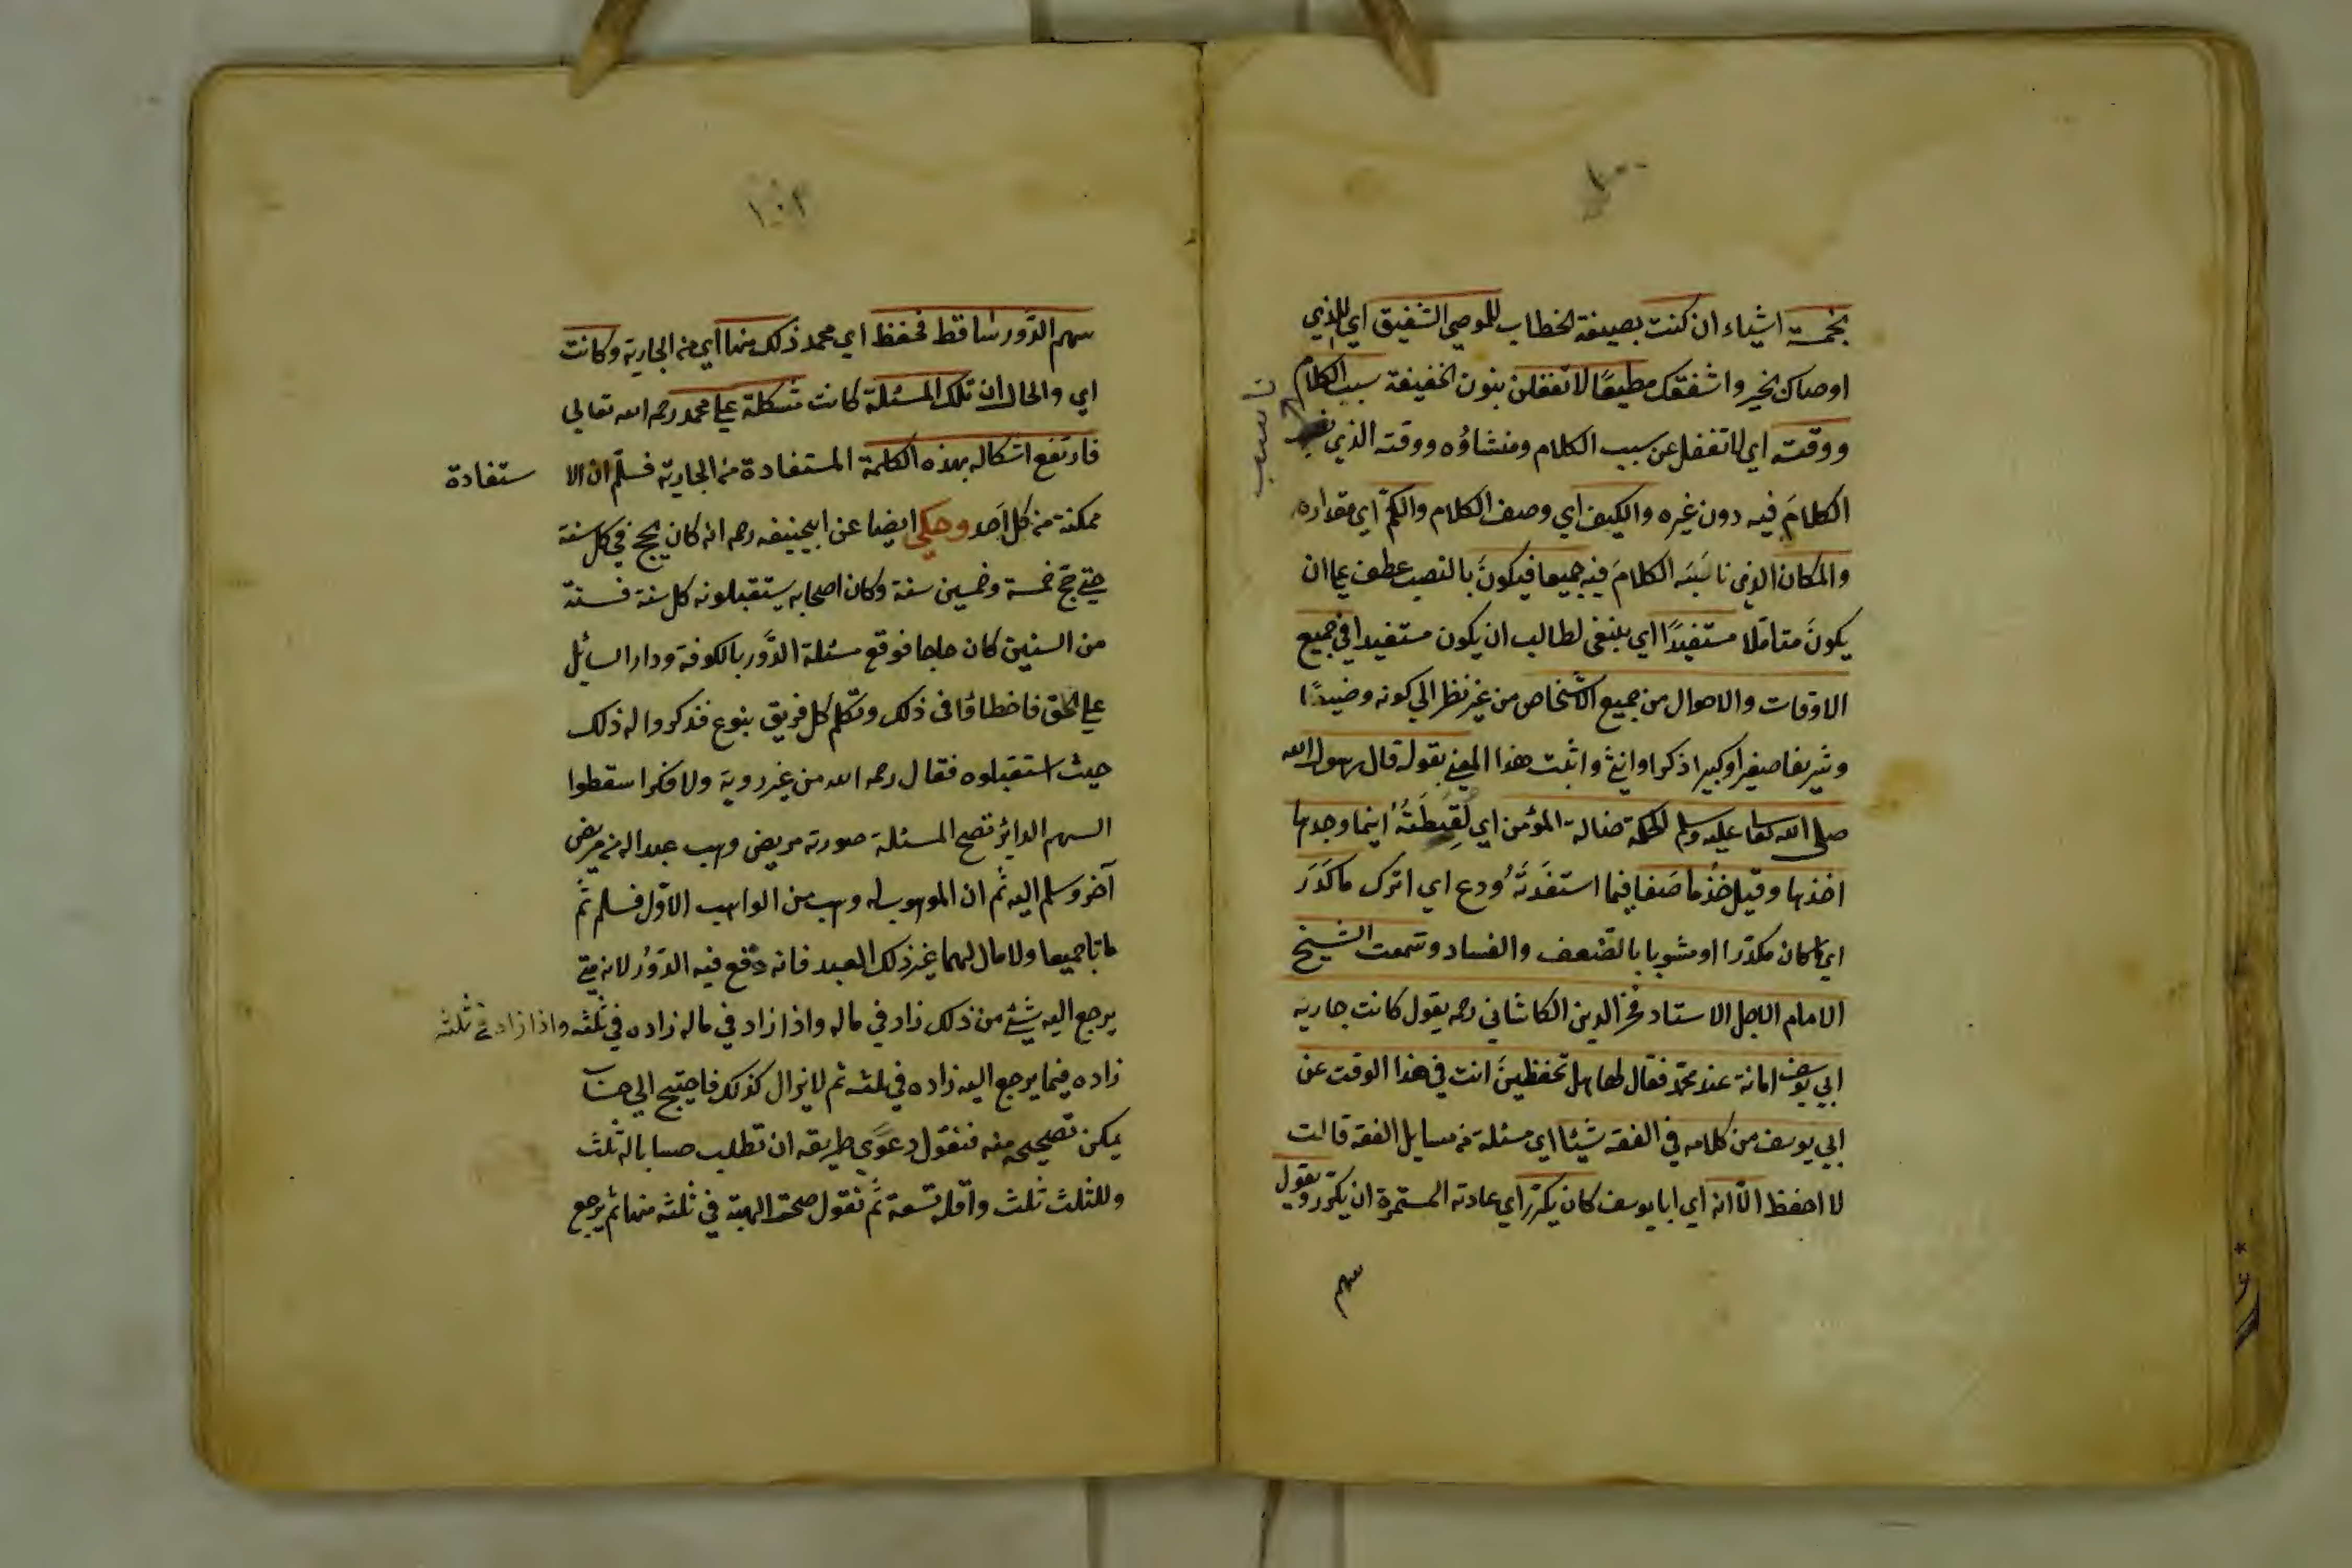 بخمسة اشياء ان كنت بصيغة الخطاب للموصي الشفيق اي للذي
اوصاك بخير واشفقك مطيعًا لا تغفلن بنون الخفيفة سبب الكلام
ووقته اي لا تغفل عن سبب الكلام ومنشاؤه ووقته الذي
تناسب
الكلامَ فيه دون غيره والكيف اي وصف الكلام والكمّ اي مقداره
والمكان الذي ناسَبَه الكلامَ فيه جميعا فيكونَ بالنصب عطف علي ان
يكونَ متاملا مستفيدًا اي ينبغي لطالب ان يكون مستفيدا في جميع
الاوقات والاحوال من جميع الاشخاص من غير نظر الي كونه وضيدًا
وشريفا صغيرا وكبيرا ذكرا وانثي واثبت هذا المعني بقوله قال رسول الله
صلي الله تعا عليه وسلم الحكمة ضالة المؤمن اي لَقِيطَتُهُ اينما وجدها
اخذها وقيل خُذْ ما صَفا فيما استفَدتَهُ ودع اي اترك ما كَدَرَ
اي ما كان مكدّرا او مشوبا بالضّعف والفساد وسمعت الشيخ
الامام الاجل الاستاد فخر الدين الكاشاني رحمه يقول كانت جارية
ابي يوسف امانة عند محمّد فقال لها هل تحفظينَ انت في هذا الوقت عن
ابي يوسف من كلامه في الفقه شيئا اي مسئلة من مسايل الفقه قالت
لا احفظ الّا انه اي ابا يوسف كان يكرّر اي عادته المستمرة ان يكرّر ويقول
سهم
١٠٢
سهم الدَّور ساقط فحفظ اي محمد ذلك منها اي من الجارية وكانت
اي والحال ان تلك المسئلة كانت مشكلة علي محمد رحمه الله تعالي
فارتفع اشكاله بهذه الكلمة المستفادة من الجارية فسلّم ان الا ستفادة
ممكنة من كل اَحد وحكي ايضا عن ابيحنيفه رحمه انه كان يحج في كل سنة
حتي حجّ خمسة وخمسين سنة وكان اصحابه يستقبلونه كل سنة فسنة
من السنين كان حاجا فوقع مسئلة الدَّور بالكوفة ودار السائل
علي الحلق فاخطاؤا في ذلك وتكلّم كل فريق بنوع فذكروا له ذلك
حيث استقبلوه فقال رحمه الله من غير روية ولا فكر اسقطوا
السهم الدائر تصح المسئلة صورته مريض وهب عبدا له من مريض
آخر وسلم اليه ثم ان الموهوب له وهب من الواهب الاوّل فسلم ثمّ
ماتا جميعا ولا مال لهما غير ذلك العبد فانه وقع فيه الدَّوْر لانه متي
يرجع اليه شئ من ذلك زاد في ماله واذا زاد في ماله زاده في ثلثه واذا زاد في ثلثه
زاده فيما يرجع اليه زاده في ثلثه ثم لا يزال كذلك فاحتيج الي حساب
يمكن تصحيحه منه فنقول دعوَي طريقه ان تطلب حسابا له ثلث
وللثلث ثلث واقله تسعة ثم نقول صحة الهبة في ثلثه منها ثم يرجع